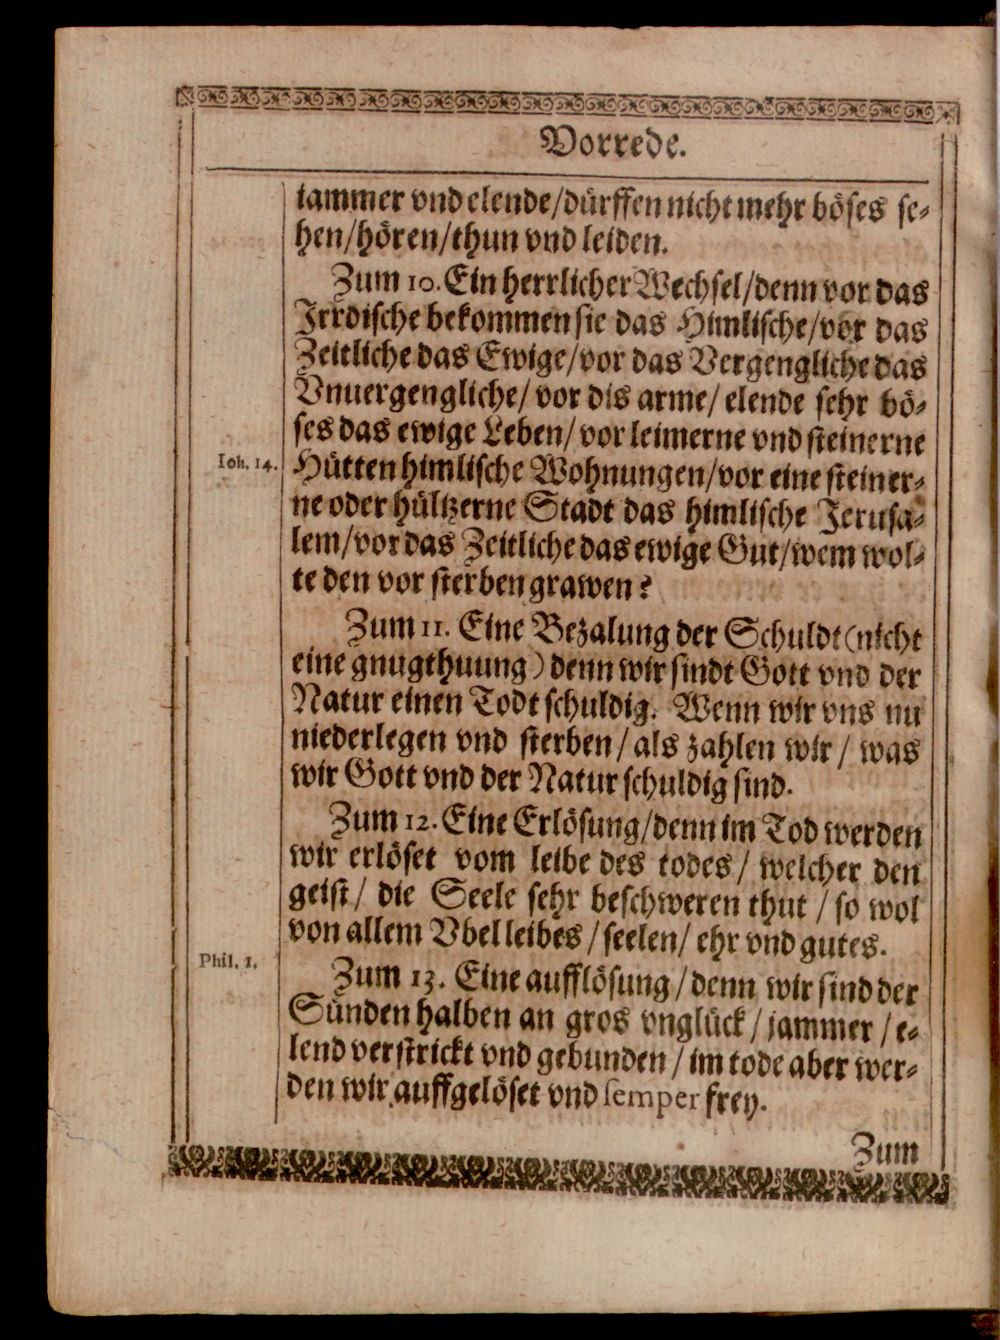 Vorrede.
iammer vnd elende/dürffen nicht mehr böses se-
hen/hören/thun vnd leiden.
Zum 10. Ein herrlicher Wechsel/denn vor das
Irrdische bekommen sie das Himlische/vor das
Zeitliche das Ewige/vor das Vergengliche das
Vnuergengliche/ vor dis arme/ elende sehr bö-
ses das ewige Leben/ vor leimerne vnd steinerne
Ioh. 14.
Hütten himlische Wohnungen/vor eine steiner-
ne oder hültzerne Stadt das himlische Jerusa-
lem/vor das Zeitliche das ewige Gut/wem wol-
te den vor sterben grawen?
Zum 11. Eine Bezalung der Schuldt (nicht
eine gnugthuung) denn wir sindt Gott vnd der
Natur einen Todt schuldig. Wenn wir vns nu
niederlegen vnd sterben/als zahlen wir/ was
wir Gott vnd der Natur schuldig sind.
Zum 12. Eine Erlösung/denn im Tod werden
wir erlöset vom leibe des todes/ welcher den
geist/ die Seele sehr beschweren thut/ so wol
von allem Vbel leibes/seelen/ ehr vnd gutes.
Phil. 1.
Zum 13. Eine aufflösung/denn wir sind der
Sünden halben an gros vnglück/jammer/e-
lend verstrickt vnd gebunden/im tode aber wer-
den wir auffgelöset vnd semper frey.
Zum